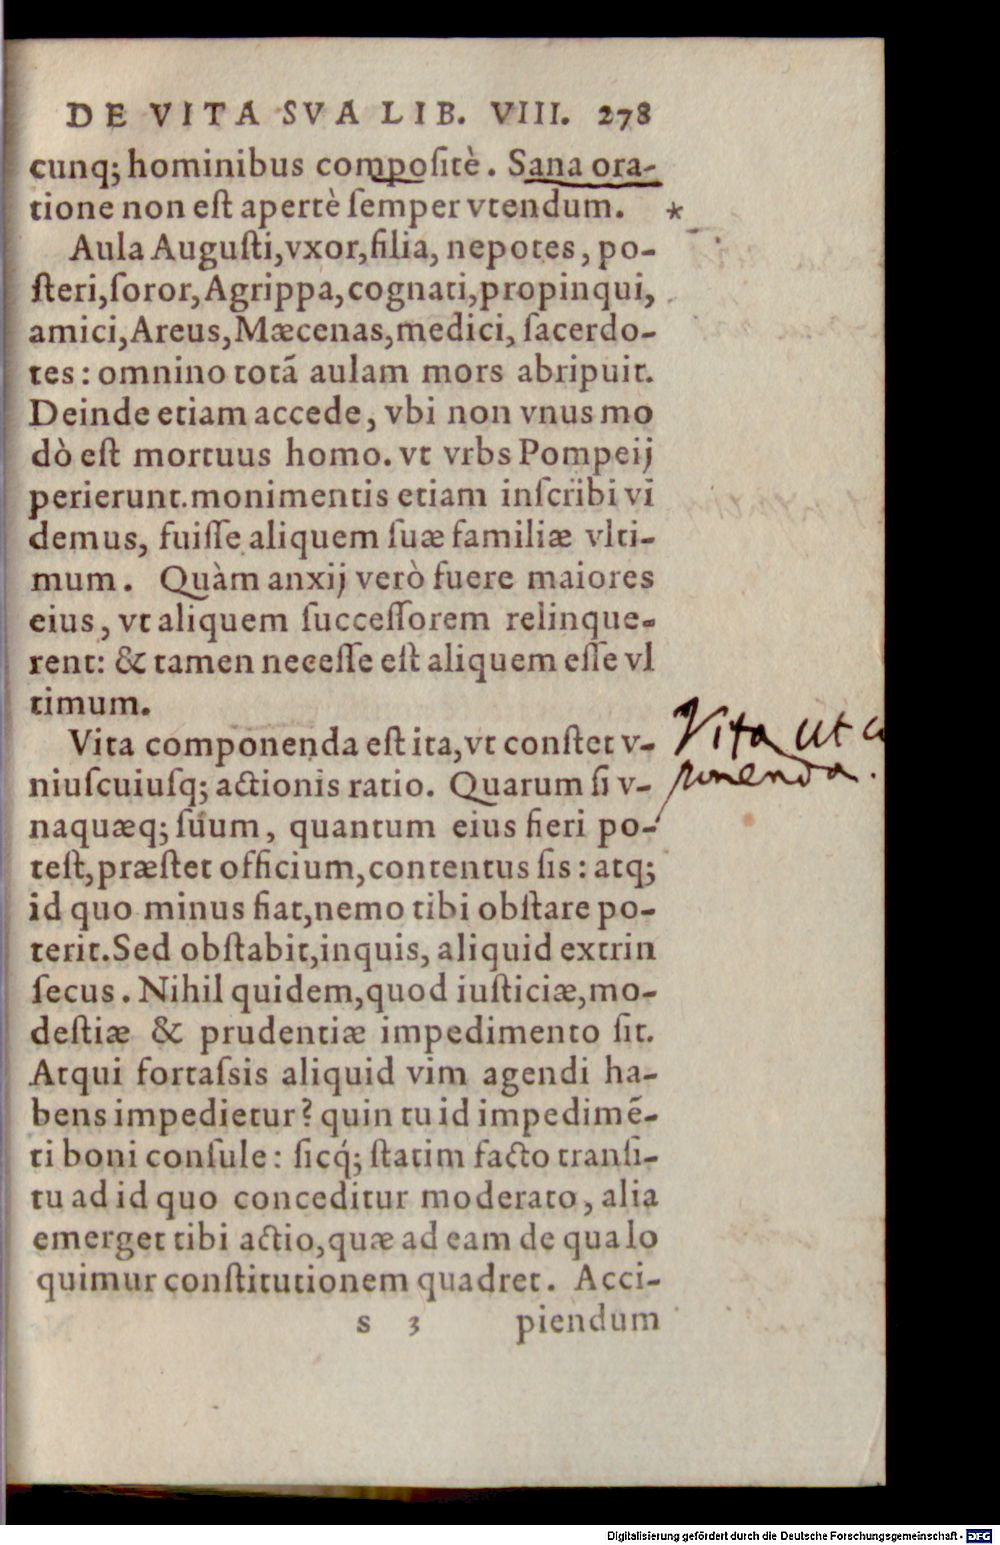 DE VITA SVA LIB. VIII. 278
cunq; hominibus compositè. Sana ora-
tione non est apertè semper vtendum. *
Aula Augusti, vxor, filia, nepotes, po-
steri, soror, Agrippa, cognati, propinqui,
amici, Areus, Mæcenas, medici, sacerdo-
tes: omnino totā aulam mors abripuit.
Deinde etiam accede, vbi non vnus mo
dò est mortuus homo. vt vrbs Pompeij
perierunt. monimentis etiam inscribi vi
demus, fuisse aliquem suæ familiæ vlti-
mum. Quàm anxij verò fuere maiores
eius, vt aliquem successorem relinque-
rent: & tamen necesse est aliquem esse vl
timum.
Vita componenda est ita, vt constet v-
niuscuiusq; actionis ratio. Quarum si v-
naquæq; suum, quantum eius fieri po-
test, præstet officium, contentus sis: atq;
id quo minus fiat, nemo tibi obstare po-
terit. Sed obstabit, inquis, aliquid extrin
secus. Nihil quidem, quod iusticiæ, mo-
destiæ & prudentiæ impedimento sit.
Atqui fortassis aliquid vim agendi ha-
bens impedietur? quin tu id impedimē-
ti boni consule: sicq́; statim facto transi-
tu ad id quo conceditur moderato, alia
emerget tibi actio, quæ ad eam de qua lo
quimur constitutionem quadret. Acci-
s 3 piendum
Vita ut
ponenda.
Digitalisierung gefördert durch die Deutsche Forschungsgemeinschaft - DFG